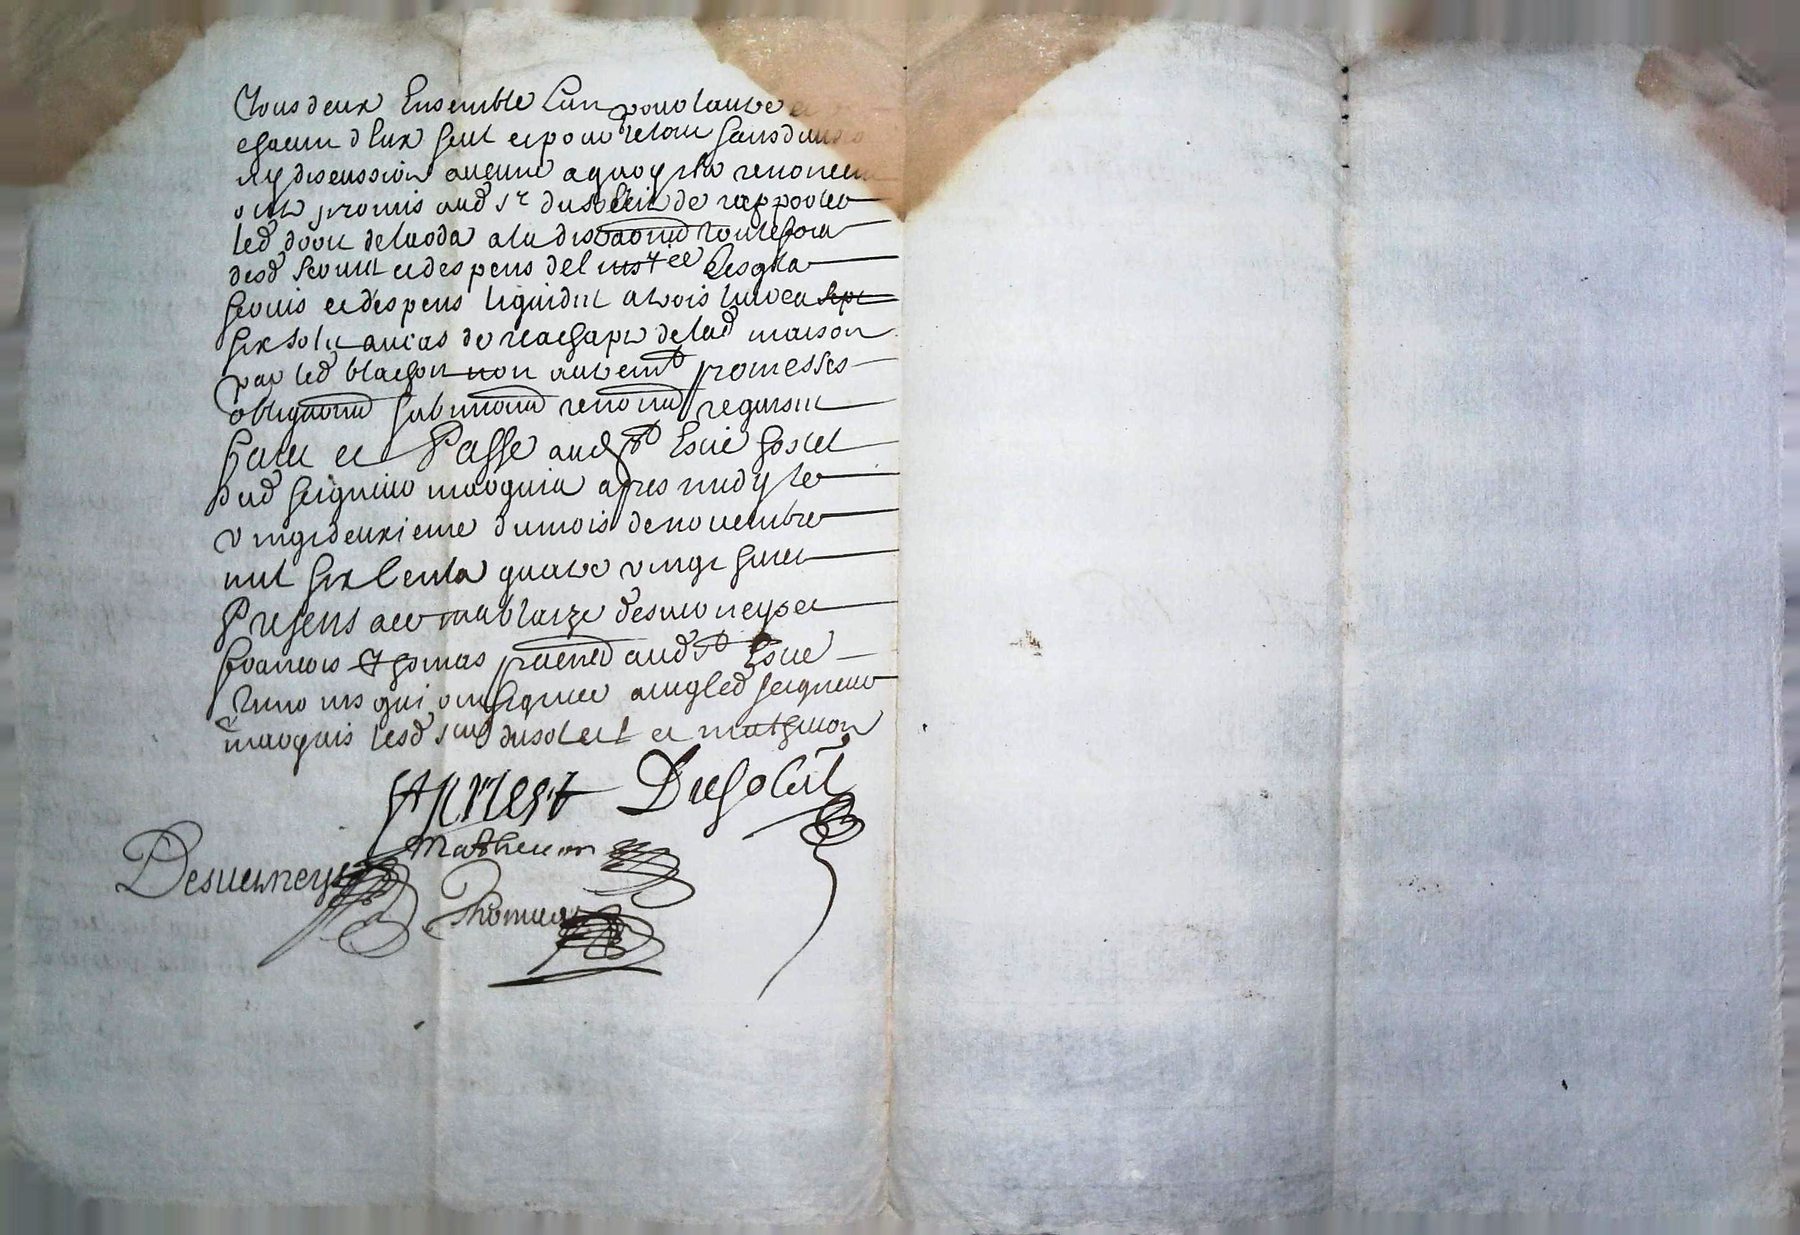 Tous deux Ensemble l'un pour lautre et
chacun d'Eux seul et pour le tout sans divi
ny discussion aucune a quoy ils renoncent
ont promis aud sr dusoleil de rapporter
led droit de laods a la
desd et despens del Lesqls
frais et despens liquidez a trois livres
six sols et au cas de reachapt de lad maison
par led blachon non autremt promesses
obligaõns submiõns renoõns requises
faict et Passé aud St Esue hostel
dud seigneur marquis apres midy le
vingt deuxieme du mois de novembre
mil six Cents quatre vingt
Presens blaize desverneys et
francois Thomas aud St Esue
temoins qui ont signé avec led seigneur
marquis lesd srs dusoleil et matheuon
Dusoleil
Matheuon
Desverneys
Thomas